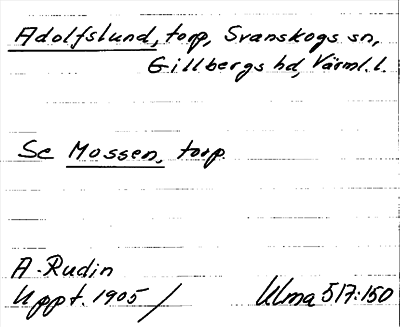 Adolfslund, torp, Svanskogs sn,
Gillbergs hd, Värml. l.
Se Mossen, torp.
A. Rudin
Uppt. 1905 /
Ulma 517:150